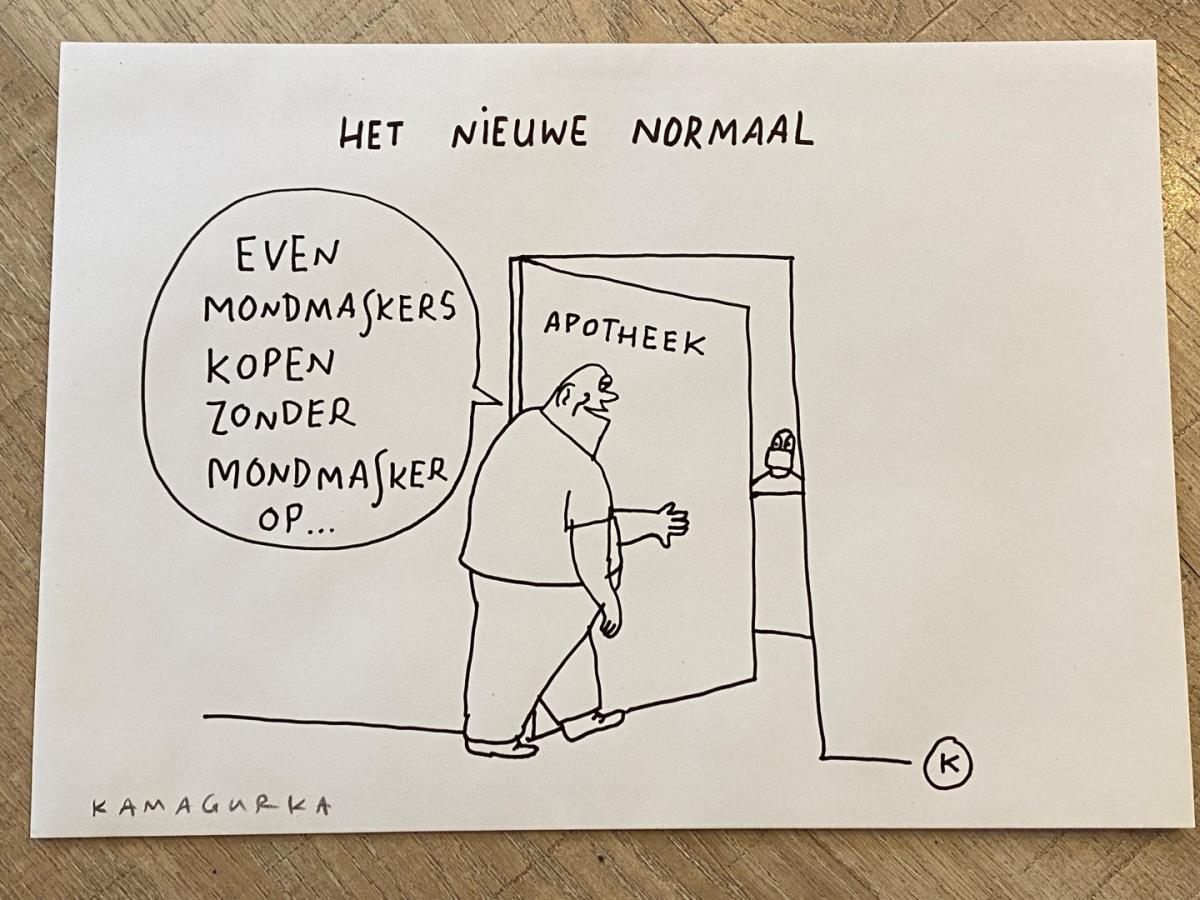 HET NIEUWE NORMAAL
EVEN
MONDMASKERS
KOPEN
ZONDER
MONDMASKER
OP...
APOTHEEK
K
KAMAGURKA